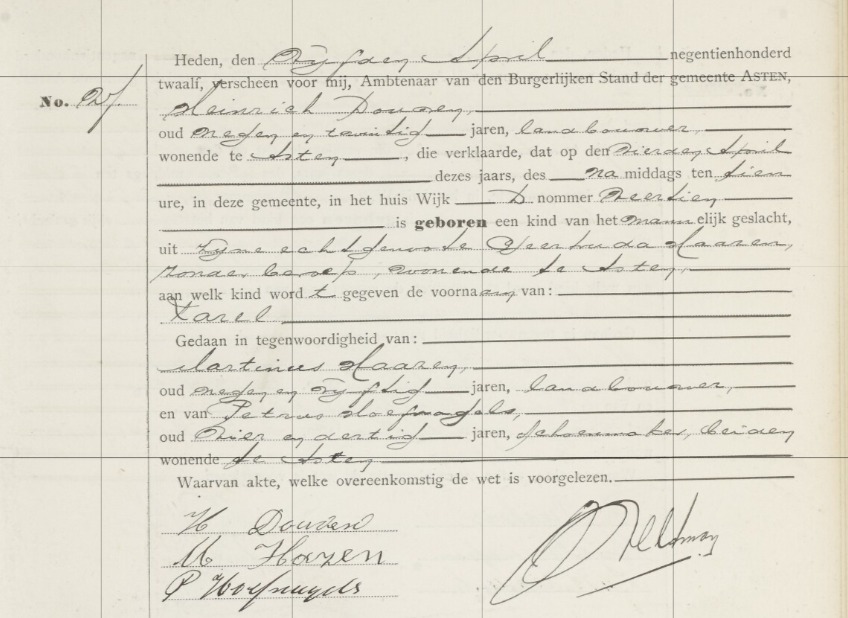 Heden, den Vijfden April negentienhonderd
twaalf, verscheen voor mij, Ambtenaar van den Burgerlijken Stand der gemeente ASTEN,
No. 27.
Heinrich Douven,
oud negen en twintig jaren, landbouwer,
wonende te Asten, die verklaarde, dat op den vierden April
dezes jaars, des na middags ten tien
ure, in deze gemeente, in het huis Wijk D nommer veertien
is geboren een kind van het mannelijk geslacht,
uit zijne echtgenoote Geertruda Haazen,
zonder beroep, wonende te Asten,
aan welk kind wordt gegeven de voornaam van:
Karel
Gedaan in tegenwoordigheid van:
Martinus Haazen,
oud negen en vijftig jaren, landbouwer,
en van Petrus Hoefnagels,
oud vier en dertig jaren, schoenmaker, beiden
wonende te Asten
Waarvan akte, welke overeenkomstig de wet is voorgelezen.
H Douven
M Hazen
P Hoefnagels